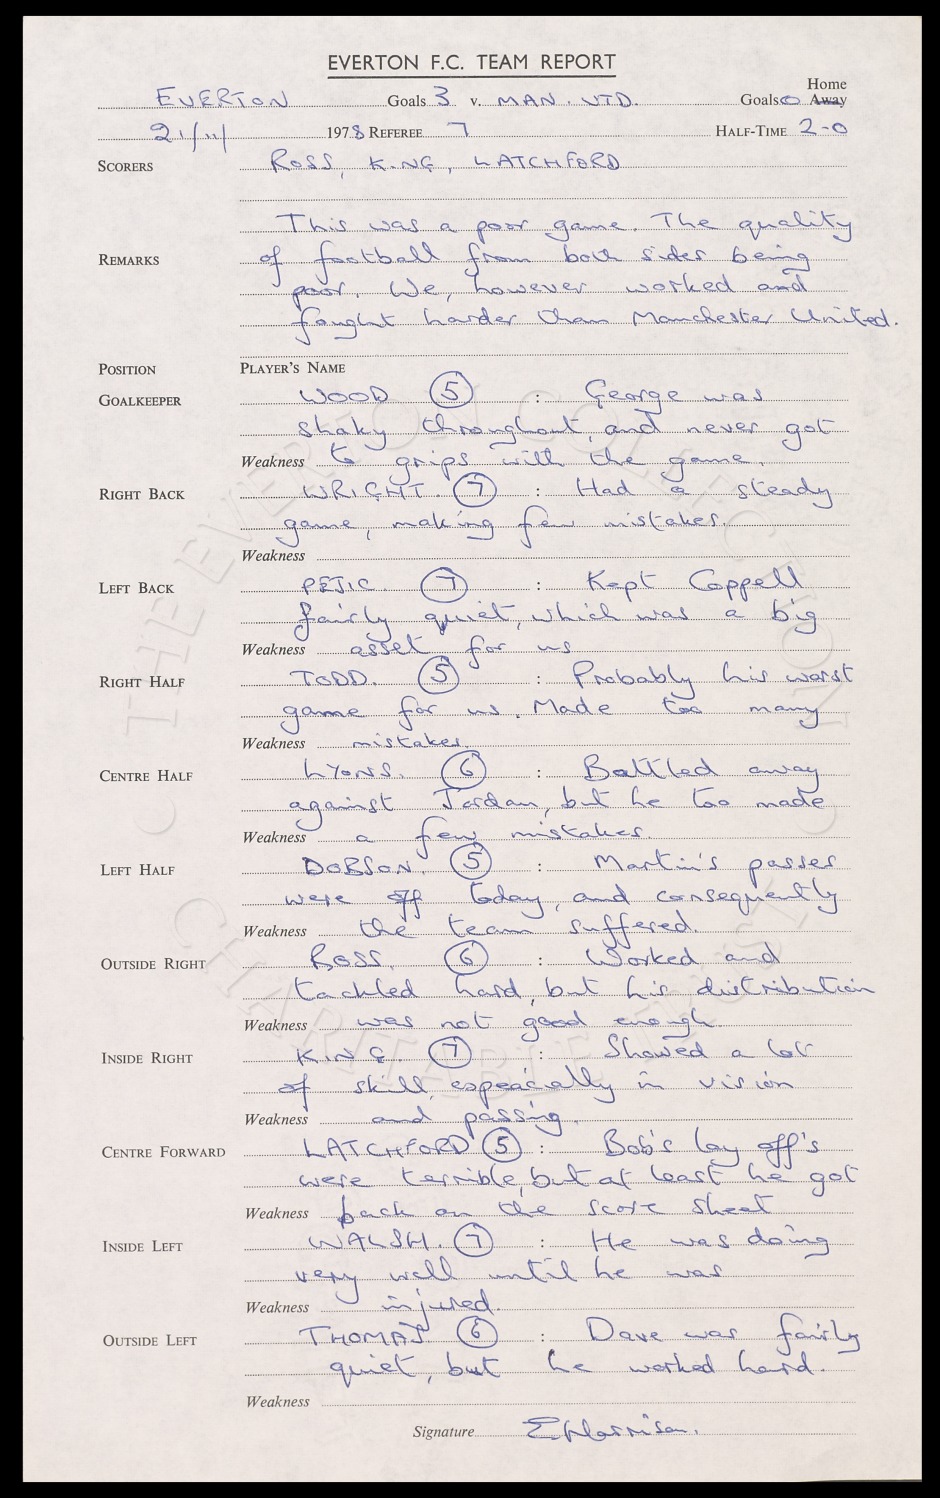 EVERTON F.C. TEAM REPORT
Home
EVERTON Goals 3 v. MAN. UTD. Goals 0 Away
21/11/ 1978 REFEREE 7 HALF-TIME 2-0
SCORERS ROSS, KING, LATCHFORD
This was a poor game. The quality
REMARKS of football from both sides being
poor. We, however worked and
fought harder than Manchester United.
POSITION PLAYER'S NAME
GOALKEEPER WOOD 5 : George was
shaky throughout, and never got
Weakness to grips with the game.
RIGHT BACK WRIGHT. 7 : Had a steady
game, making few mistakes.
Weakness
LEFT BACK PEJIC. 7 : Kept Coppell
fairly quiet, which was a big
Weakness asset for us
RIGHT HALF TODD. 5 : Probably his worst
game for us. Made too many
Weakness mistakes.
CENTRE HALF LYONS. 6 : Battled away
against Jordan, but he too made
Weakness a few mistakes.
LEFT HALF DOBSON. 5 : Martin's passes
were off today, and consequently
Weakness the team suffered.
OUTSIDE RIGHT ROSS. 6 : Worked and
tackled hard, but his distribution
Weakness was not good enough
INSIDE RIGHT KING. 7 : Showed a lot
of skill, especially in vision
Weakness and passing.
CENTRE FORWARD LATCHFORD 5 : Bob's lay off's
were terrible, but at least he got
Weakness back on the score sheet
INSIDE LEFT WALSH. 7 : He was doing
very well until he was
Weakness injured.
OUTSIDE LEFT THOMAS 6 : Dave was fairly
quiet, but he worked hard.
Weakness
Signature E Harrison.
THE EVERTON COLLECTION
CHARITABLE TRUST